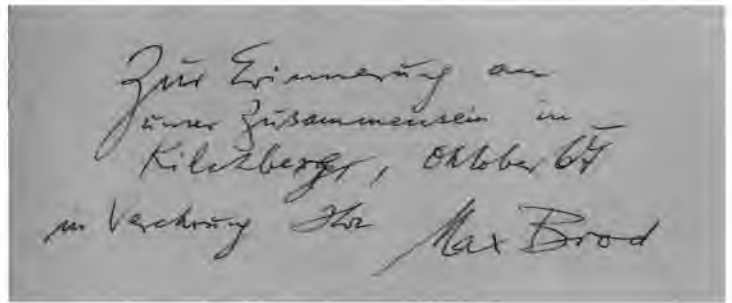 Zur Erinnerung an
unser Zusammensein in
Kilchberg, Oktober 67
in Verehrung Ihr Max Brod